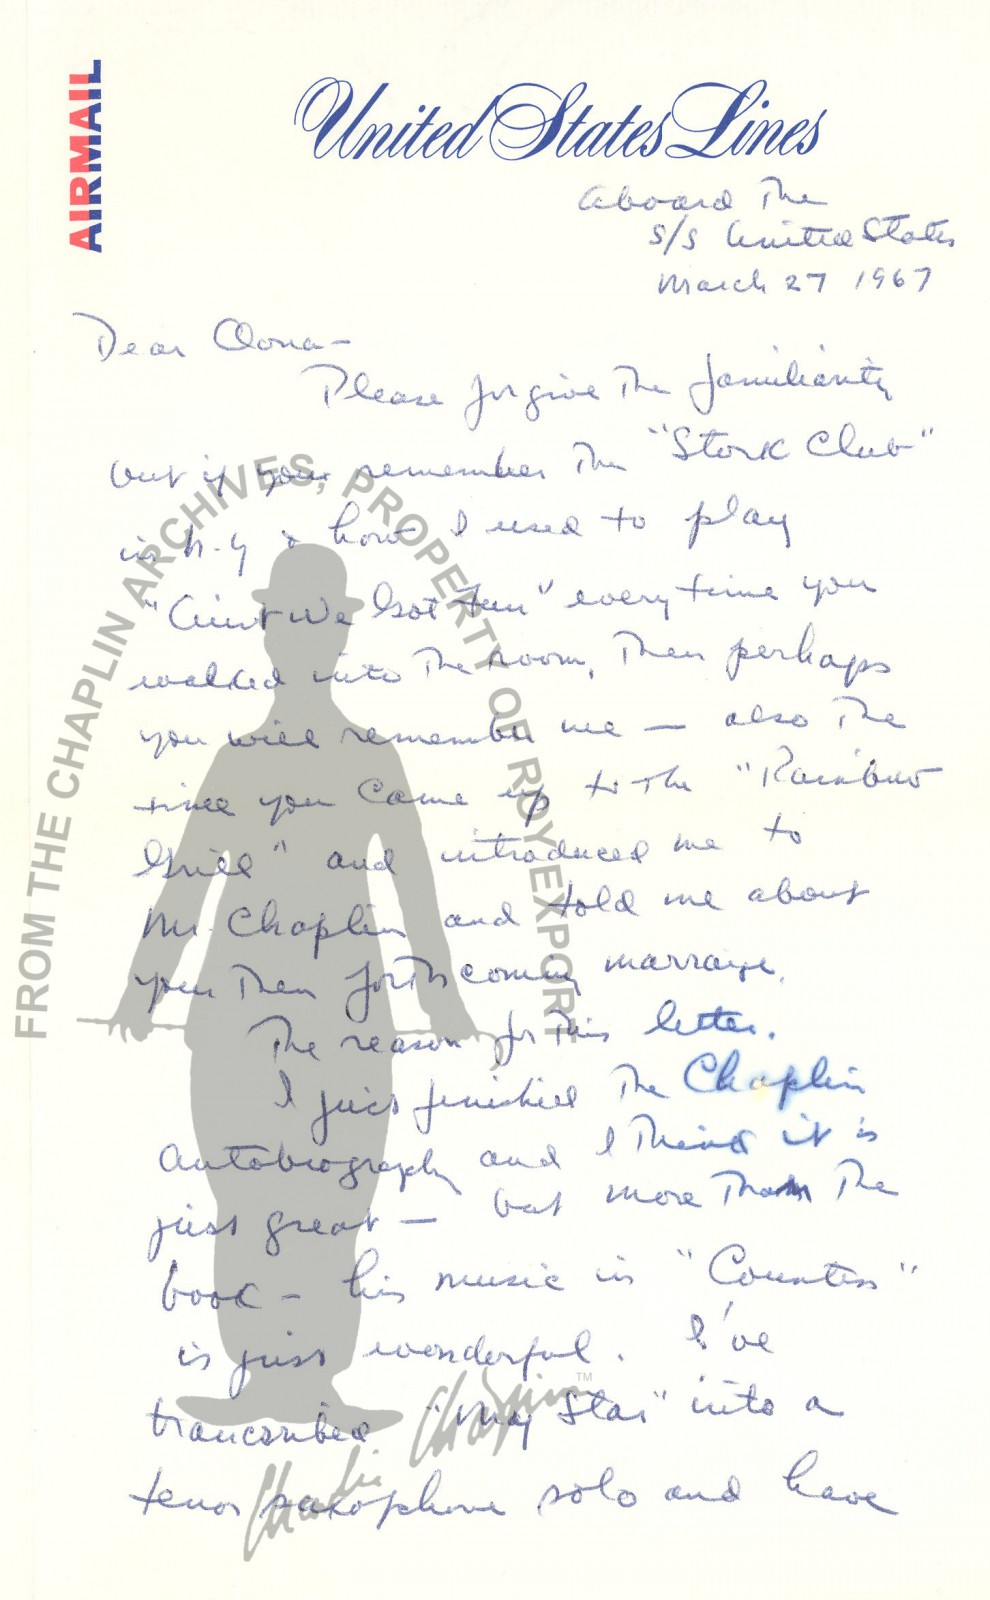 AIRMAIL
United States Lines
aboard the
S/S United States
March 27 1967
Dear Oona—
Please forgive the familiarity
but if you remember the "Stork Club"
in N.Y & how I used to play
"Aint We Got Fun" every time you
walked into the room, then perhaps
you will remember me — also the
time you came up to the "Rainbow
Grill" and introduced me to
Mr. Chaplin and told me about
your then forthcoming marraige.
The reason for this letter.
I just finished the Chaplin
Autobiography and I think it is
just great — but more than the
book — his music in "Countess"
is just wonderful. I've
transcribed "My Star" into a
tenor saxophone solo and have
FROM THE CHAPLIN ARCHIVES, PROPERTY OF ROY EXPORT
Charlie Chaplin TM